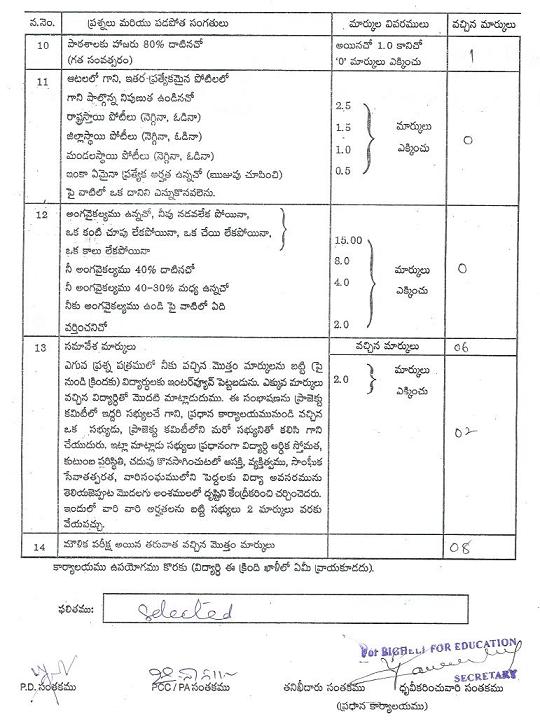 వ.నెం. ప్రశ్నలు మరియు పడపోత సంగతులు మార్కుల వివరములు వచ్చిన మార్కులు
10 పాఠశాలకు హాజరు 80% దాటినచో అయినచో 1.0 కానిచో 1
(గత సంవత్సరం) '0' మార్కులు ఎక్కించు
11 ఆటలలో గాని, ఇతర ప్రత్యేకమైన పోటీలలో
గాని పాల్గొన్న నిపుణుత ఉండినచో
రాష్ట్రస్తాయి పోటీలు (నెగ్గినా, ఓడినా) 2.5
జిల్లాస్థాయి పోటీలు (నెగ్గినా, ఓడినా) 1.5 మార్కులు
మండలస్థాయి పోటీలు (నెగ్గినా, ఓడినా) 1.0 ఎక్కించు 0
ఇంకా ఏమైనా ప్రత్యేక అర్హత ఉన్నచో (ఋజువు చూపించి) 0.5
పై వాటిలో ఒక దానిని ఎన్నుకొనవలెను.
12 అంగవైకల్యము ఉన్నచో, నీవు నడవలేక పోయినా,
ఒక కంటి చూపు లేకపోయినా, ఒక చేయి లేకపోయినా,
ఒక కాలు లేకపోయినా 15.00
నీ అంగవైకల్యము 40% దాటినచో 8.0 మార్కులు 0
నీ అంగవైకల్యము 40-30% మధ్య ఉన్నచో 4.0 ఎక్కించు
నీకు అంగవైకల్యము ఉండి పై వాటిలో ఏది
వర్తించనిచో 2.0
13 సమావేశ మార్కులు వచ్చిన మార్కులు 06
ఎగువ ప్రశ్న పత్రములో నీకు వచ్చిన మొత్తం మార్కులను బట్టి (పై మార్కులు
నుండి క్రిందకు) విద్యార్థులకు ఇంటర్వ్యూన్ పెట్టబడును. ఎక్కువ మార్కులు 2.0 ఎక్కించు
వచ్చిన విద్యార్థితో మొదటి మాట్లాడుదుము. ఈ సంభాషణను ప్రాజెక్టు
కమిటీలో ఇద్దరి సభ్యులచే గాని, ప్రధాన కార్యాలయమునుండి వచ్చిన
ఒక సభ్యుడు, ప్రాజెక్టు కమిటీలోని మరో సభ్యునితో కలిసి గాని 02
చేయుదురు. ఇట్లా మాట్లాడు సభ్యులు ప్రధానంగా విద్యార్థి ఆర్థిక స్తోమత,
కుటుంబ పరిస్థితి, చదువు కొనసాగించుటలో ఆసక్తి, వ్యక్తిత్వము, సాంఘీక
సేవాతత్పరత, వారిసంఘములోని పెద్దలకు విద్యా అవసరమును
తెలియజెప్పుట మొదలగు అంశములలో దృష్టిని కేంద్రీకరించి చర్చించెదరు.
ఇందులో వారి వారి అర్హతలను బట్టి సభ్యులు 2 మార్కులు వరకు
వేయవచ్చు.
14 మౌళిక పరీక్ష అయిన తరువాత వచ్చిన మొత్తం మార్కులు 08
కార్యాలయము ఉపయోగము కొరకు (విద్యార్థి ఈ క్రింది ఖాళీలో ఏమీ వ్రాయకూడదు).
ఫలితము: selected
For BIGHELP FOR EDUCATION
SECRETARY
P.D. సంతకము PCC / PA సంతకము తనిఖీదారు సంతకము ధృవీకరించువారి సంతకము
(ప్రధాన కార్యాలయము)